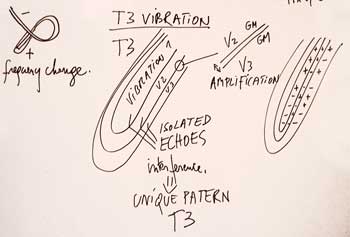 -
+
frequency change.
T3 VIBRATION
T3
VIBRATION 1
V2
V3
V2
GM
GM
V3
AMPLIFICATION
ISOLATED
ECHOES
interference.
UNIQUE PATERN
T3